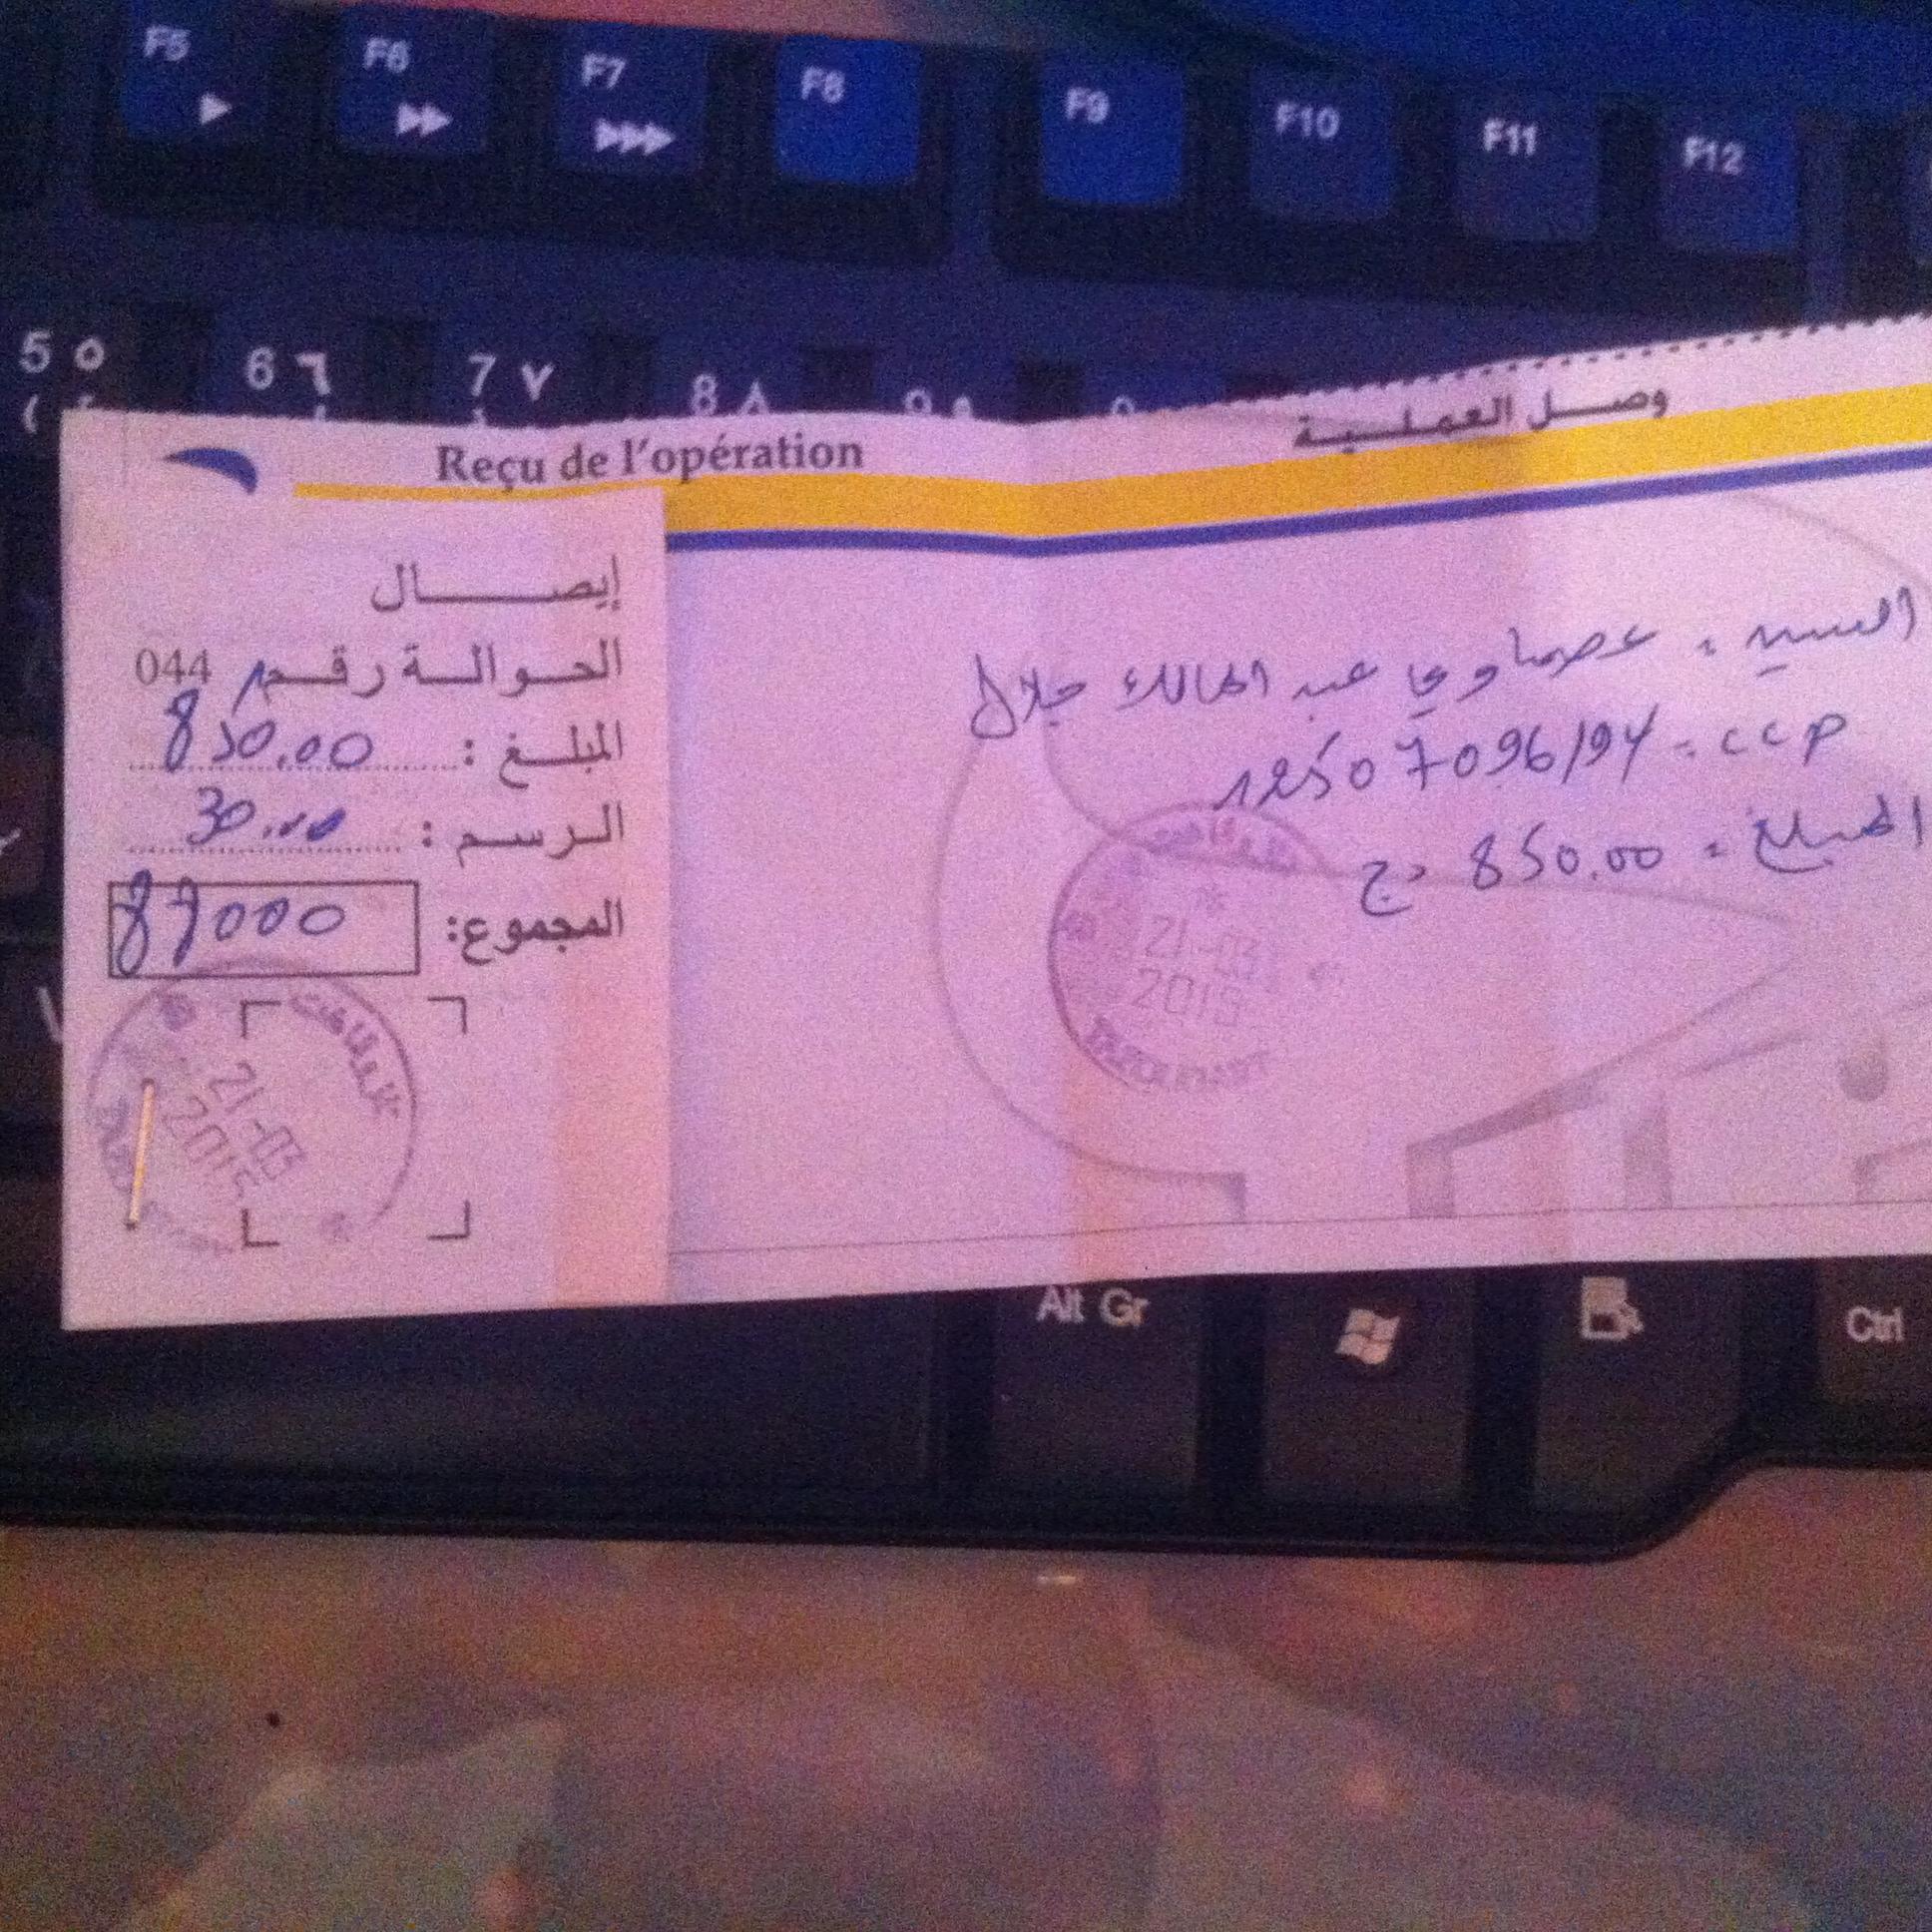 F5 F6 F7 F8 F9 F10 F11 F12
5 ٥ 6 ٦ 7 ٧ 8 ٨
Reçu de l'opération
وصل العملية
إيصال
الحوالة رقم 044
المبلغ : 850.00
الرسم : 30.00
المجموع:
21-03
2015
السيد = عصماوي عبد المالك جلال
CCP = 12507096/94
المبلغ = 850.00 دج
21-03
2015
Alt Gr
Ctrl